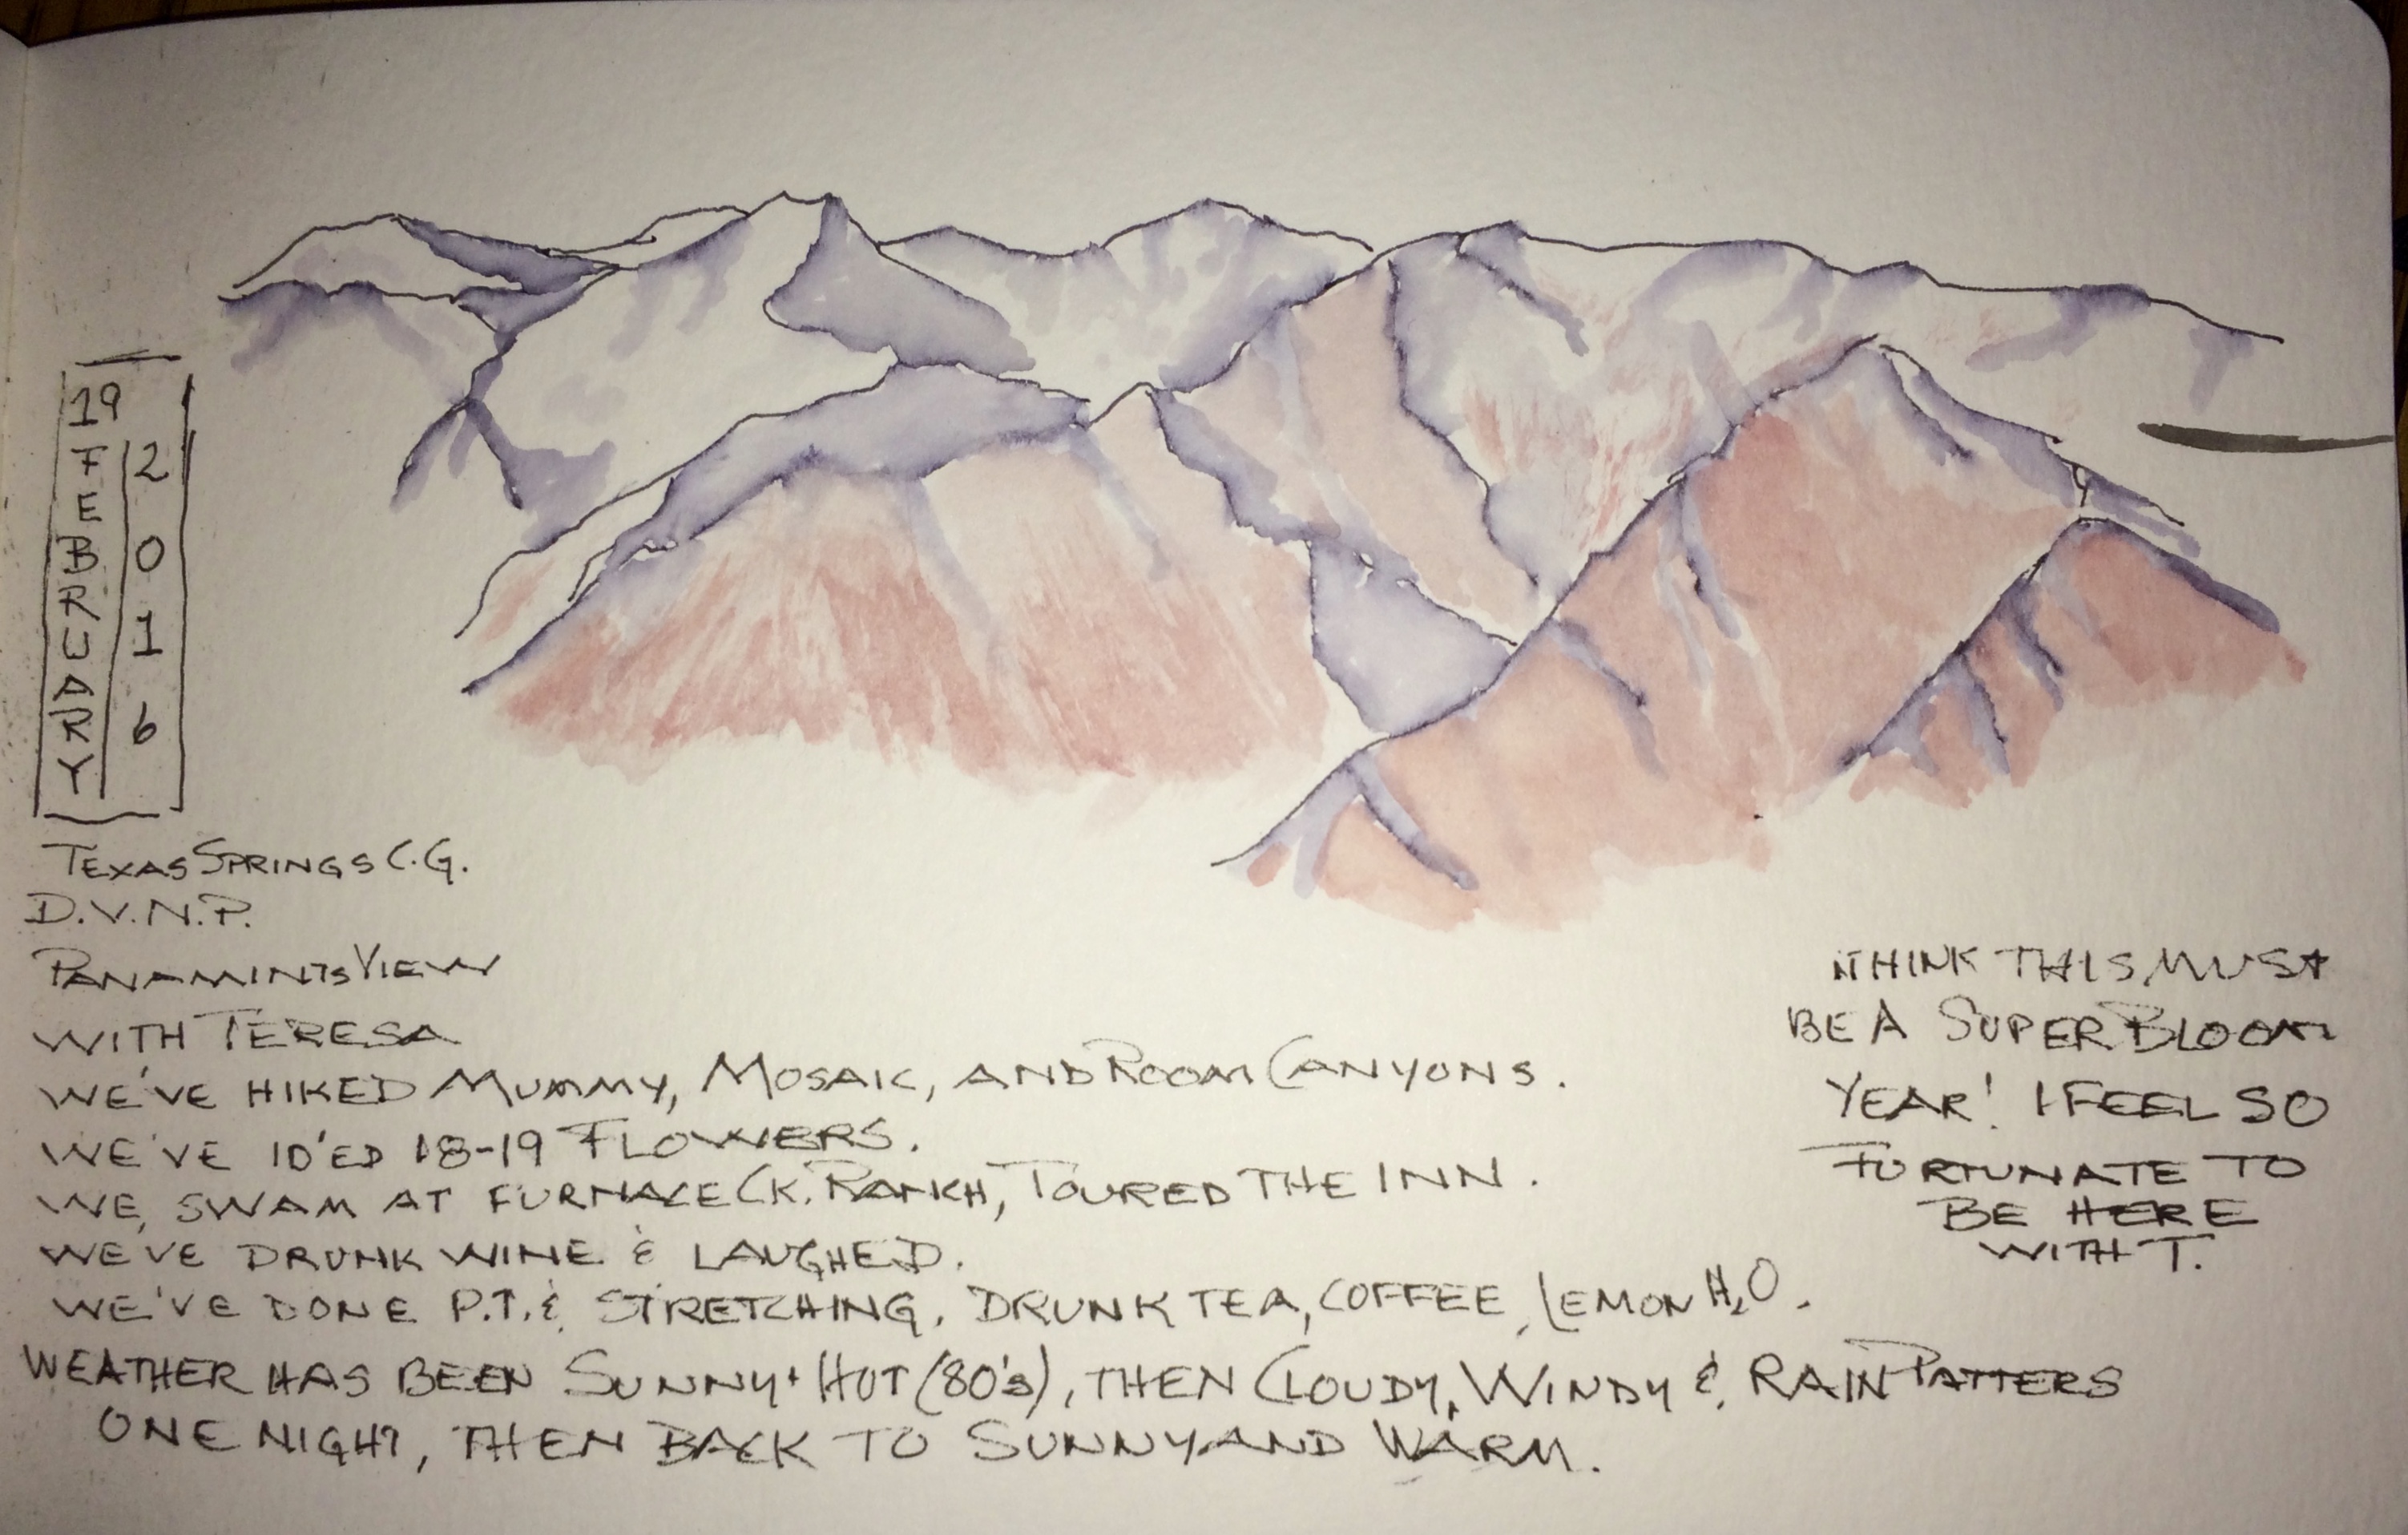 19
FEBRUARY
2016
TEXAS SPRINGS C.G.
D.V.N.P.
PANAMINTS VIEW
WITH TERESA
WE'VE HIKED MUMMY, MOSAIC, AND ROOM CANYONS.
WE'VE ID'ED 18-19 FLOWERS.
WE SWAM AT FURNACE CK. RANCH, TOURED THE INN.
WE'VE DRUNK WINE & LAUGHED.
WE'VE DONE P.T. & STRETCHING. DRUNK TEA, COFFEE, LEMON H2O.
WEATHER HAS BEEN SUNNY + HOT (80'S), THEN CLOUDY, WINDY & RAIN PATTERS
ONE NIGHT, THEN BACK TO SUNNY AND WARM.
I THINK THIS MUST
BE A SUPER BLOOM
YEAR! I FEEL SO
FORTUNATE TO
BE HERE
WITH T.